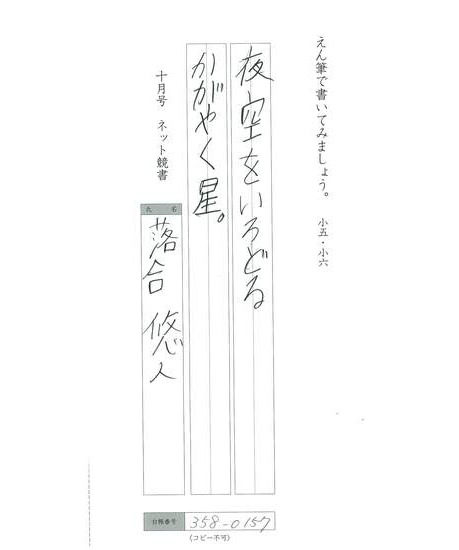 えん筆で書いてみましょう。 小五・小六
夜空をいろどる
かがやく星。
十月号 ネット競書
氏 名
落合 悠人
台帳番号 358-0157
(コピー不可)